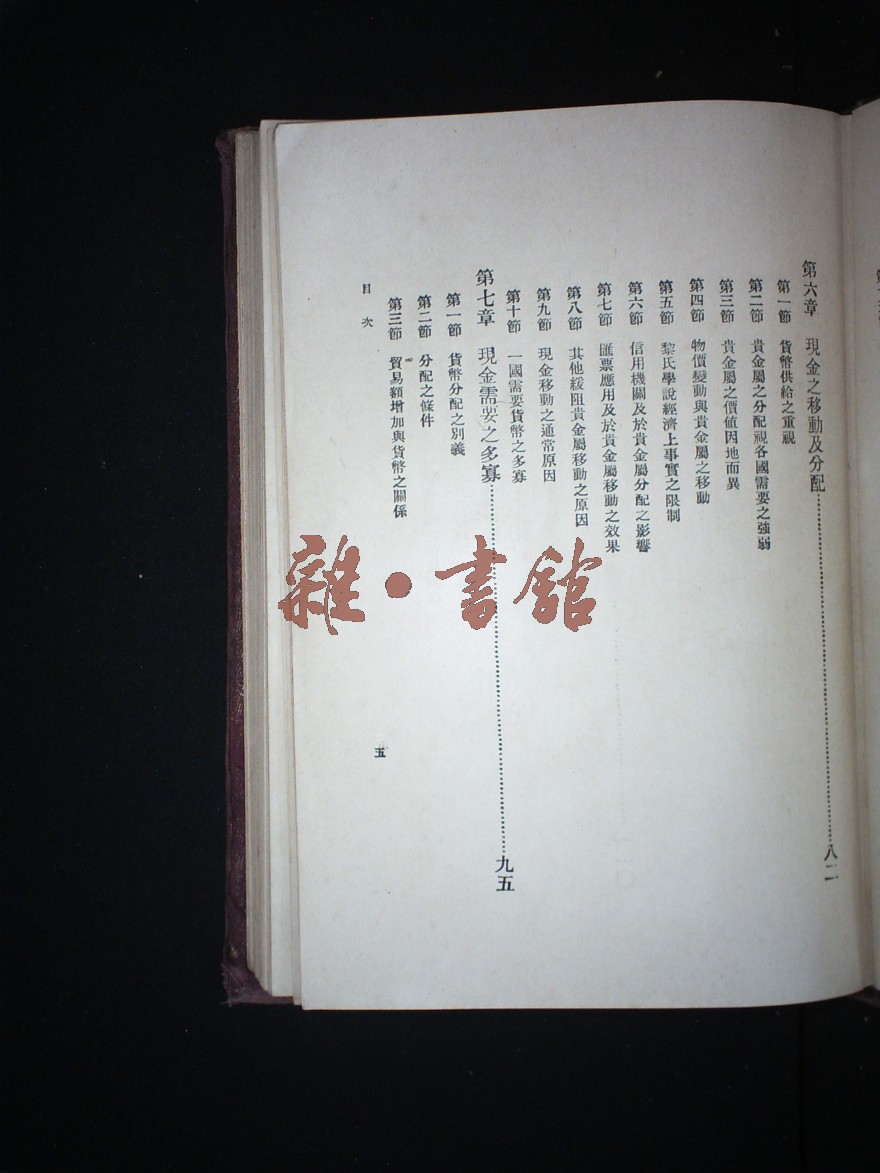 第六章 現金之移動及分配……八二
第一節 貨幣供給之重視
第二節 貴金屬之分配視各國需要之強弱
第三節 貴金屬之價值因地而異
第四節 物價變動與貴金屬之移動
第五節 黎氏學說經濟上事實之限制
第六節 信用機關及於貴金屬分配之影響
第七節 匯票應用及於貴金屬移動之效果
第八節 其他緩阻貴金屬移動之原因
第九節 現金移動之通常原因
第十節 一國需要貨幣之多寡
第七章 現金需要之多寡……九五
第一節 貨幣分配之別義
第二節 分配之條件
第三節 貿易額增加與貨幣之關係
目次
五
雜·書館